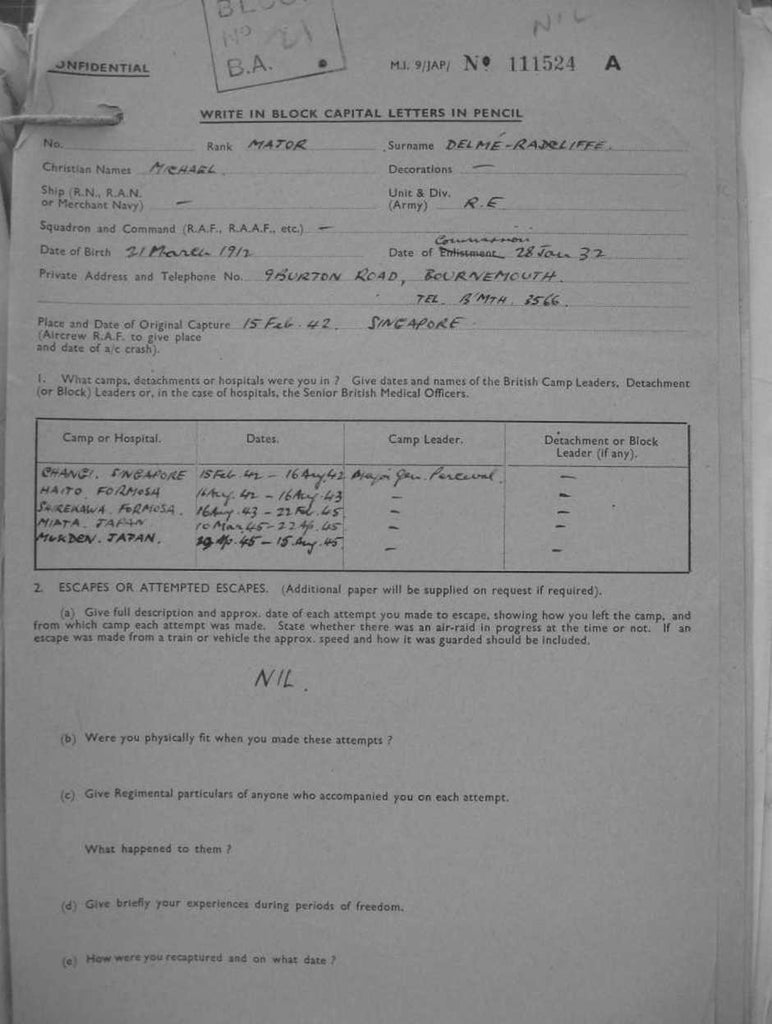 BLOCK
NO 21
B.A.
NIL
CONFIDENTIAL
M.I. 9/JAP/ No 111524 A
WRITE IN BLOCK CAPITAL LETTERS IN PENCIL
No. Rank MAJOR Surname DELMÉ-RADCLIFFE.
Christian Names MICHAEL. Decorations —
Ship (R.N., R.A.N. or Merchant Navy) — Unit & Div. (Army) R.E.
Squadron and Command (R.A.F., R.A.A.F., etc.) —
Commission
Date of Birth 21 March 1912 Date of Enlistment 28 Jan 32
Private Address and Telephone No. 9 BURTON ROAD, BOURNEMOUTH.
TEL. B'MTH. 3566.
Place and Date of Original Capture 15 Feb. 42. SINGAPORE
(Aircrew R.A.F. to give place
and date of a/c crash).
1. What camps, detachments or hospitals were you in ? Give dates and names of the British Camp Leaders, Detachment
(or Block) Leaders or, in the case of hospitals, the Senior British Medical Officers.
Camp or Hospital. Dates. Camp Leader. Detachment or Block
Leader (if any).
CHANGI. SINGAPORE 15 Feb. 42 - 16 Aug 42 Major Gen. Percival. —
HAITO FORMOSA 16 Aug. 42 - 16 Aug. 43 — —
SHIREKAWA. FORMOSA. 16 Aug. 43 - 22 Feb. 45 — —
MIATA. JAPAN 10 Mar. 45 - 22 Ap. 45 — —
MUKDEN. JAPAN. 29 Ap. 45 - 15 Aug. 45 — —
2. ESCAPES OR ATTEMPTED ESCAPES. (Additional paper will be supplied on request if required).
(a) Give full description and approx. date of each attempt you made to escape, showing how you left the camp, and
from which camp each attempt was made. State whether there was an air-raid in progress at the time or not. If an
escape was made from a train or vehicle the approx. speed and how it was guarded should be included.
NIL.
(b) Were you physically fit when you made these attempts ?
(c) Give Regimental particulars of anyone who accompanied you on each attempt.
What happened to them ?
(d) Give briefly your experiences during periods of freedom.
(e) How were you recaptured and on what date ?